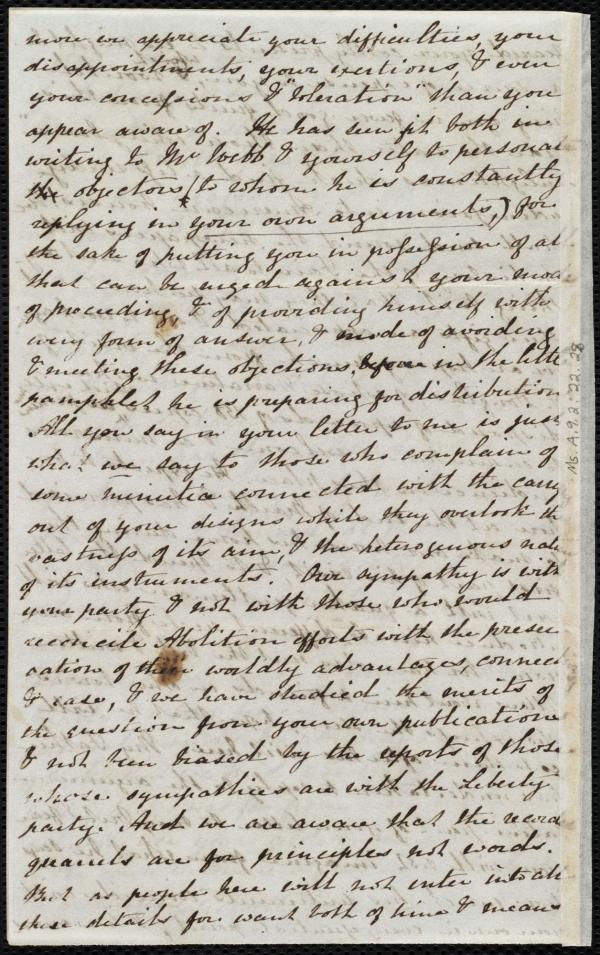 more we appreciate your difficulties, your
disappointments, your exertions, & even
your concessions & "toleration" than you
appear aware of. He has seen fit both in
writing to Mr Webb & yourself to personat
the objectors (to whom he is constantly
replying in your own arguments,) for
the sake of putting you in possession of al
that can be urged against your mod
of proceeding, & of providing himself with
every form of answer, & mode of avoiding
& meeting these objections, before in the little
pamphlet he is preparing for distribution
All you say in your letter to me is just
what we say to those who complain of
some minutia connected with the carry
out of your designs while they overlook th
vastness of its aim, & the heterogenous natu
of its instruments. Our sympathy is with
your party & not with those who would
reconcile Abolition efforts with the preser
vation of their worldly advantages, connect
& ease, & we have studied the merits of
the question from your own publications
& not been biased by the reports of those
whose sympathies are with the Liberty
party. And we are aware that the
quarrels are for principles not words.
But as people here will not enter into all
these details for want both of time & means
Ms.A.9.2.22.28